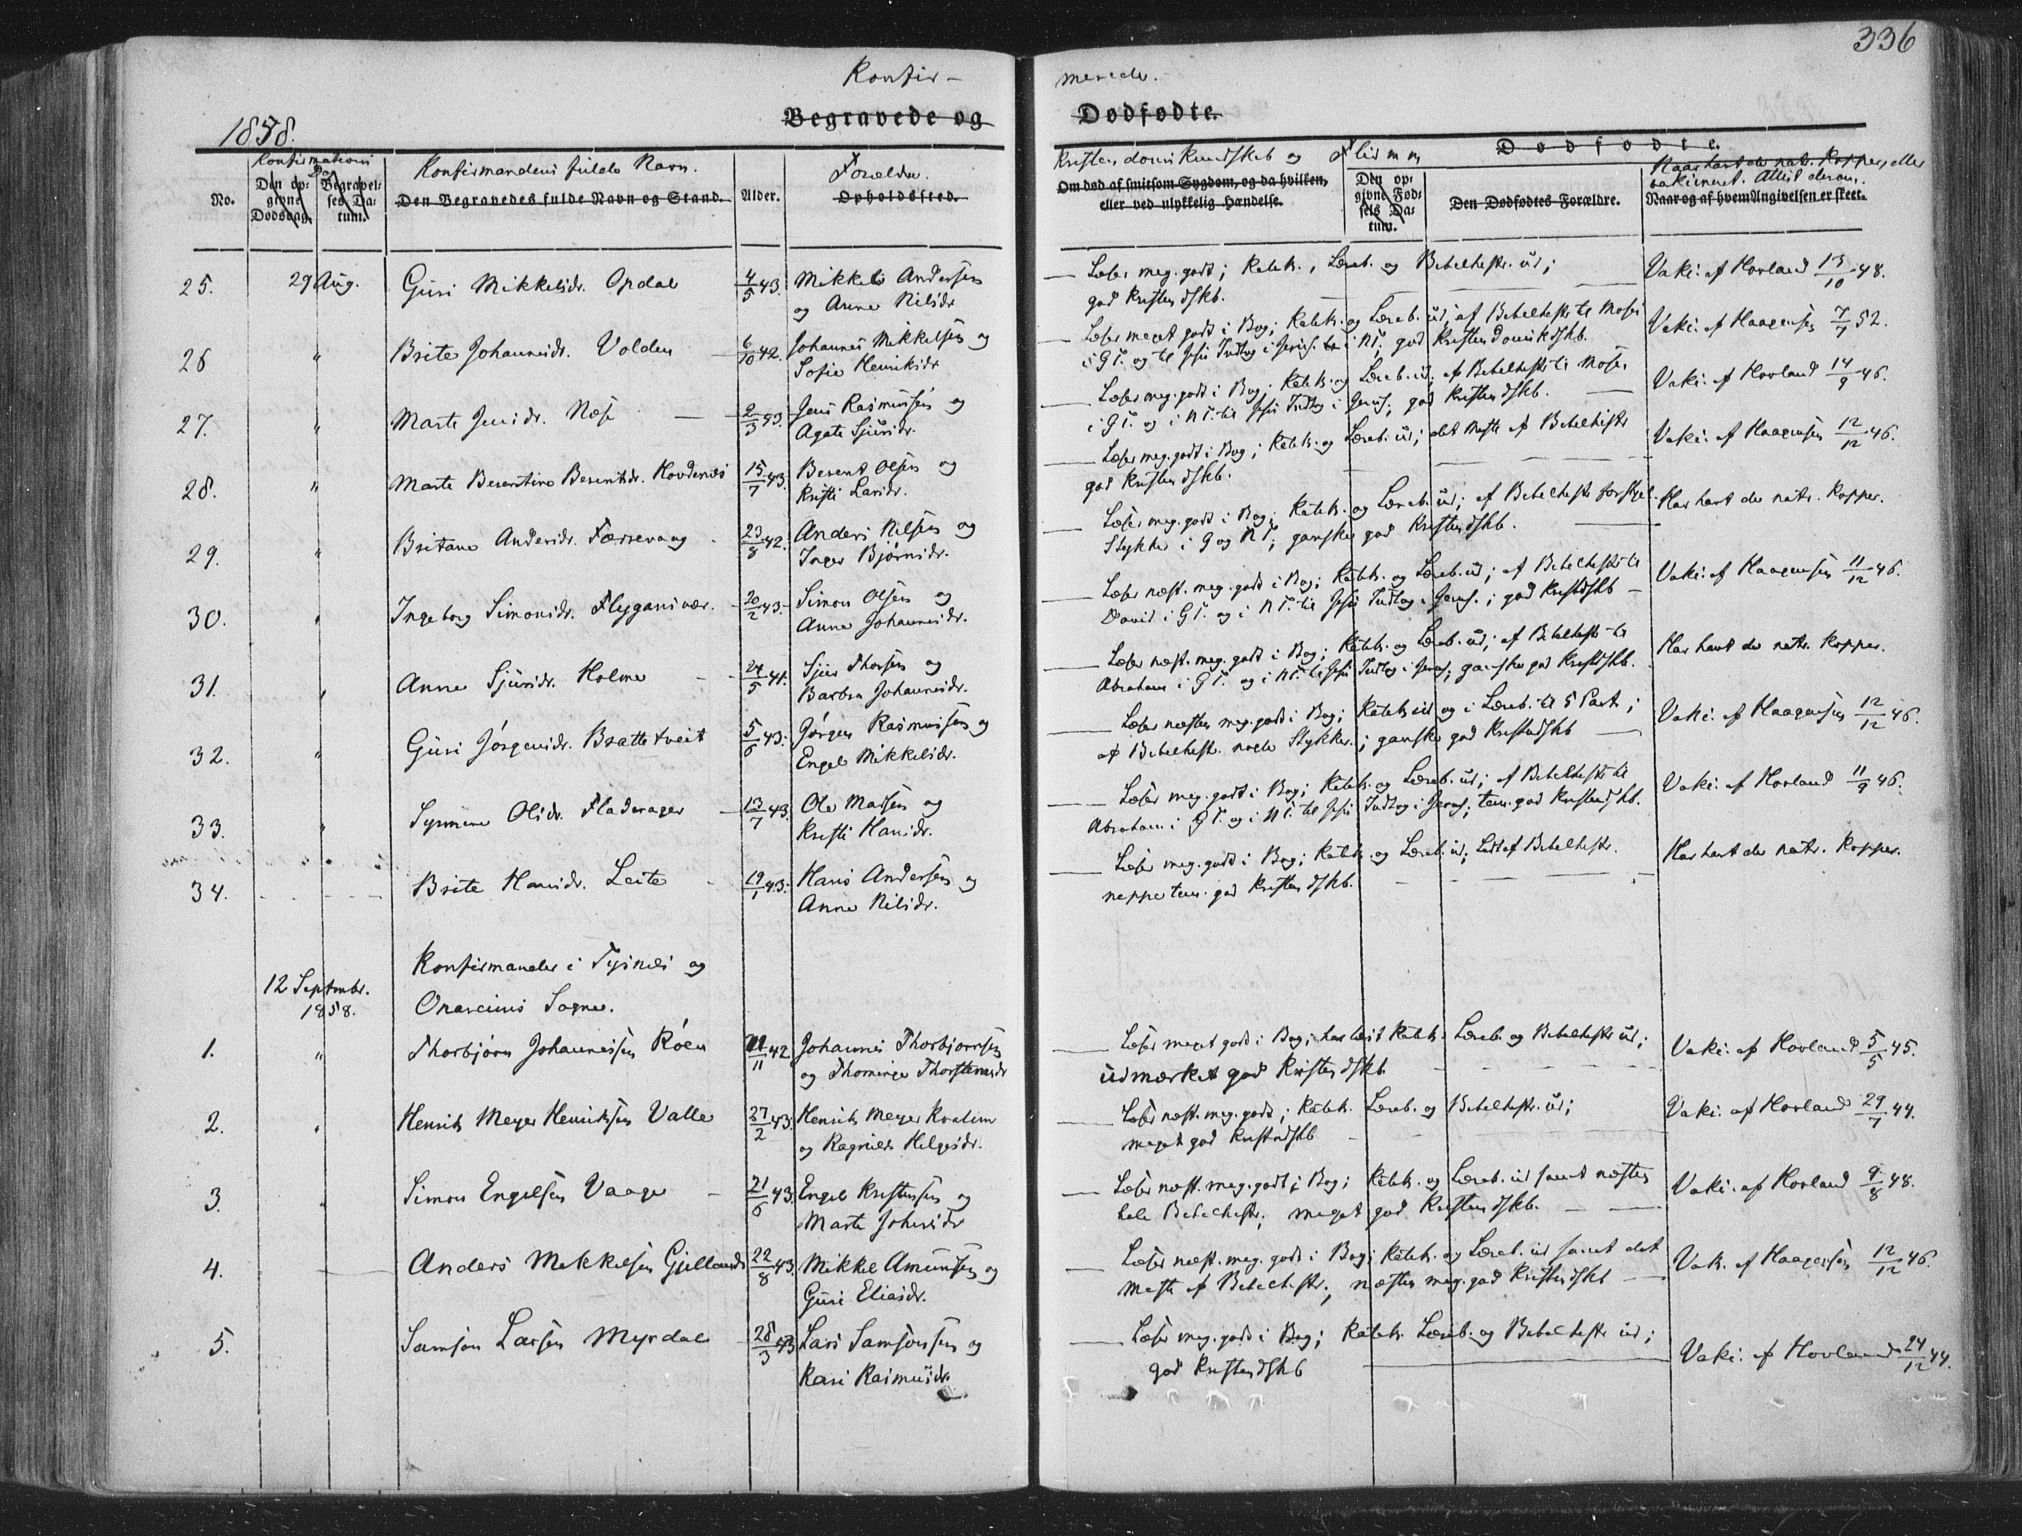 336
Konfir-
merede.
Begravede og
Dødfødte.
1858.
Konfirmations Dag
Konfirmandens fulde Navn.
Forældre.
Kristendomskundskab og Flid m m
Dødfødte.
Naar havt de nat. Kopper, eller
vakcineret. Attest derom.
No.
Den opgivne Dødsdag.
Begravelses Datum.
Den Begravedes fulde Navn og Stand.
Alder.
Opholdssted.
Om død af smitsom Sygdom, og da hvilken,
eller ved ulykkelig Hændelse.
Den opgivne Fødsels Datum.
Den Dødfødtes Forældre.
Naar og af hvem Angivelsen er skeet.
25. 29 Aug. Guri Mikkelsdr. Opdal 4/5 43. Mikkel Andersen
og Anna Nilsdr
Læser meg. godt; Katek., Læreb. og Bibelhistr. ud;
god Kristendskb.
Vaki. af Hovland 13/10 48.
26 " Brite Johannesdr. Volden 6/10 42. Johannes Mikkelsen og
Sofie Henriksdr
Læser meget godt i Bog; Katek. og Læreb. ud; af Bibelhistr til Moses
i GT. og til Jesu Indtog i Jerus. i NT; god Kristendomskdskb.
Vaki. af Haagensen 7/7 52.
27. " Marte Jensdr. Næse 2/3 43. Jens Rasmussen og
Agate Sjursdr.
Læser meg. godt i Bog; Katek. og Læreb. ud; af Bibelhistr til Moses
i GT. og i NT. til Jesu Indtog i Jerus; god Kristendskb.
Vaki. af Hovland 14/9 46.
28. " Marte Berentine Berentsdr. Hovdenæs 15/7 43. Berent Olsen og
Kristi Larsdr.
Læser meg. godt i Bog; Katek. og Læreb. ud; det meste af Bibelhistr
god Kristendskb.
Vaki. af Haagensen 12/12 46.
29. " Britane Andersdr. Færrevaag 23/8 42. Anders Nilsen og
Inger Bjørnsdr.
Læser meg. godt i Bog; Katek. og Læreb. ud; af Bibelhistr forskjel.
Stykker i G og NT; ganske god Kristendskb.
Har havt de natr. Kopper.
30. " Ingeborg Simonsdr. Flygansvær. 20/2 43. Simon Olsen og
Anna Johannesdr.
Læser næst. meg. godt i Bog; Katek. og Læreb. ud; af Bibelhistr til
David i GT. og i NT. til Jesu Indtog i Jerus.; god Kristdskb
Vaki. af Haagensen 11/12 46.
31. " Anna Sjursdr. Holme 24/5 41. Sjur Thorsen og
Barbra Johannesdr.
Læser næst. meg. godt i Bog; Katek. og Læreb. ud; af Bibelhistr til
Abraham i GT. og i NT. til Jesu Indtog i Jerus; ganske god Kristdskb.
Har havt de natr. Kopper.
32. " Guri Jørgensdr. Brattetveit 5/6 43. Jørgen Rasmussen og
Engel Mikkelsdr.
Læser næsten meg. godt i Bog; Katek ud og i Læreb. til 5 Part;
af Bibelhistr. nogle Stykker; ganske god Kristendskb
Vaki. af Haagensen 12/12 46.
33. " Synnine Olsdr. Fladerager 13/7 43. Ole Madsen og
Kristi Hansdr.
Læser meg. godt i Bog; Katek. og Læreb. ud; af Bibelhistr til
Abraham i GT. og i NT. til Jesu Indtog i Jerus; tem. god Kristendskb.
Vaki. af Hovland 11/9 46.
34. Brite Hansdr. Leite 19/1 43. Hans Andersen og
Anna Nilsdr.
Læser meg. godt i Bog; Katek. og Læreb. ud; Lidt af Bibelhistr.
neppe tem. god Kristendskb.
Har havt de natr. Kopper.
12 Septembr. 1858.
Konfirmander i Tysnæs og
Onareims Sogne.
1. " Thorbjørn Johannessen Røen 11/11 42 Johannes Thorbjørnsen
og Thominge Thorstensdr
Læser meget godt i Bog; har læst Katek. Læreb. og Bibelhistr ud;
udmærket god Kristendskb
Vaki. af Hovland 5/5 45.
2. " Henrik Meyer Henriksen Valle 27/2 43. Henrik Meyer Kvalem
og Ragnilde Helgesdr.
Læser næst. meg. godt; Katek. Læreb. og Bibelhistr. ud;
meget god Kristendskb
Vaki. af Hovland 29/7 44.
3. " Simon Engelsen Vaage 21/6 43. Engel Kristensen og
Marte Johansdr
Læser næst. meg. godt i Bog; Katek. og Læreb. ud samt næsten
hele Bibelhistr.; meget god Kristendskb.
Vaki. af Hovland 9/8 48.
4. Anders Mikkelsen Gjelland 22/8 43. Mikkel Amundsen og
Guri Eliasdr.
Læser næst. meg. godt i Bog; Katek. og Læreb. ud samt det
meste af Bibelhistr.; næsten meg. god Kristendskb
Vak. af Haagensen 12/12 46.
5. Samson Larsen Myrdal 28/3 43 Lars Samsonsen og
Kari Rasmusdr
Læser meg. godt i Bog; Katek. Læreb. og Bibelhistr ud;
god Kristendskb
Vaki. af Hovland 24/12 44.